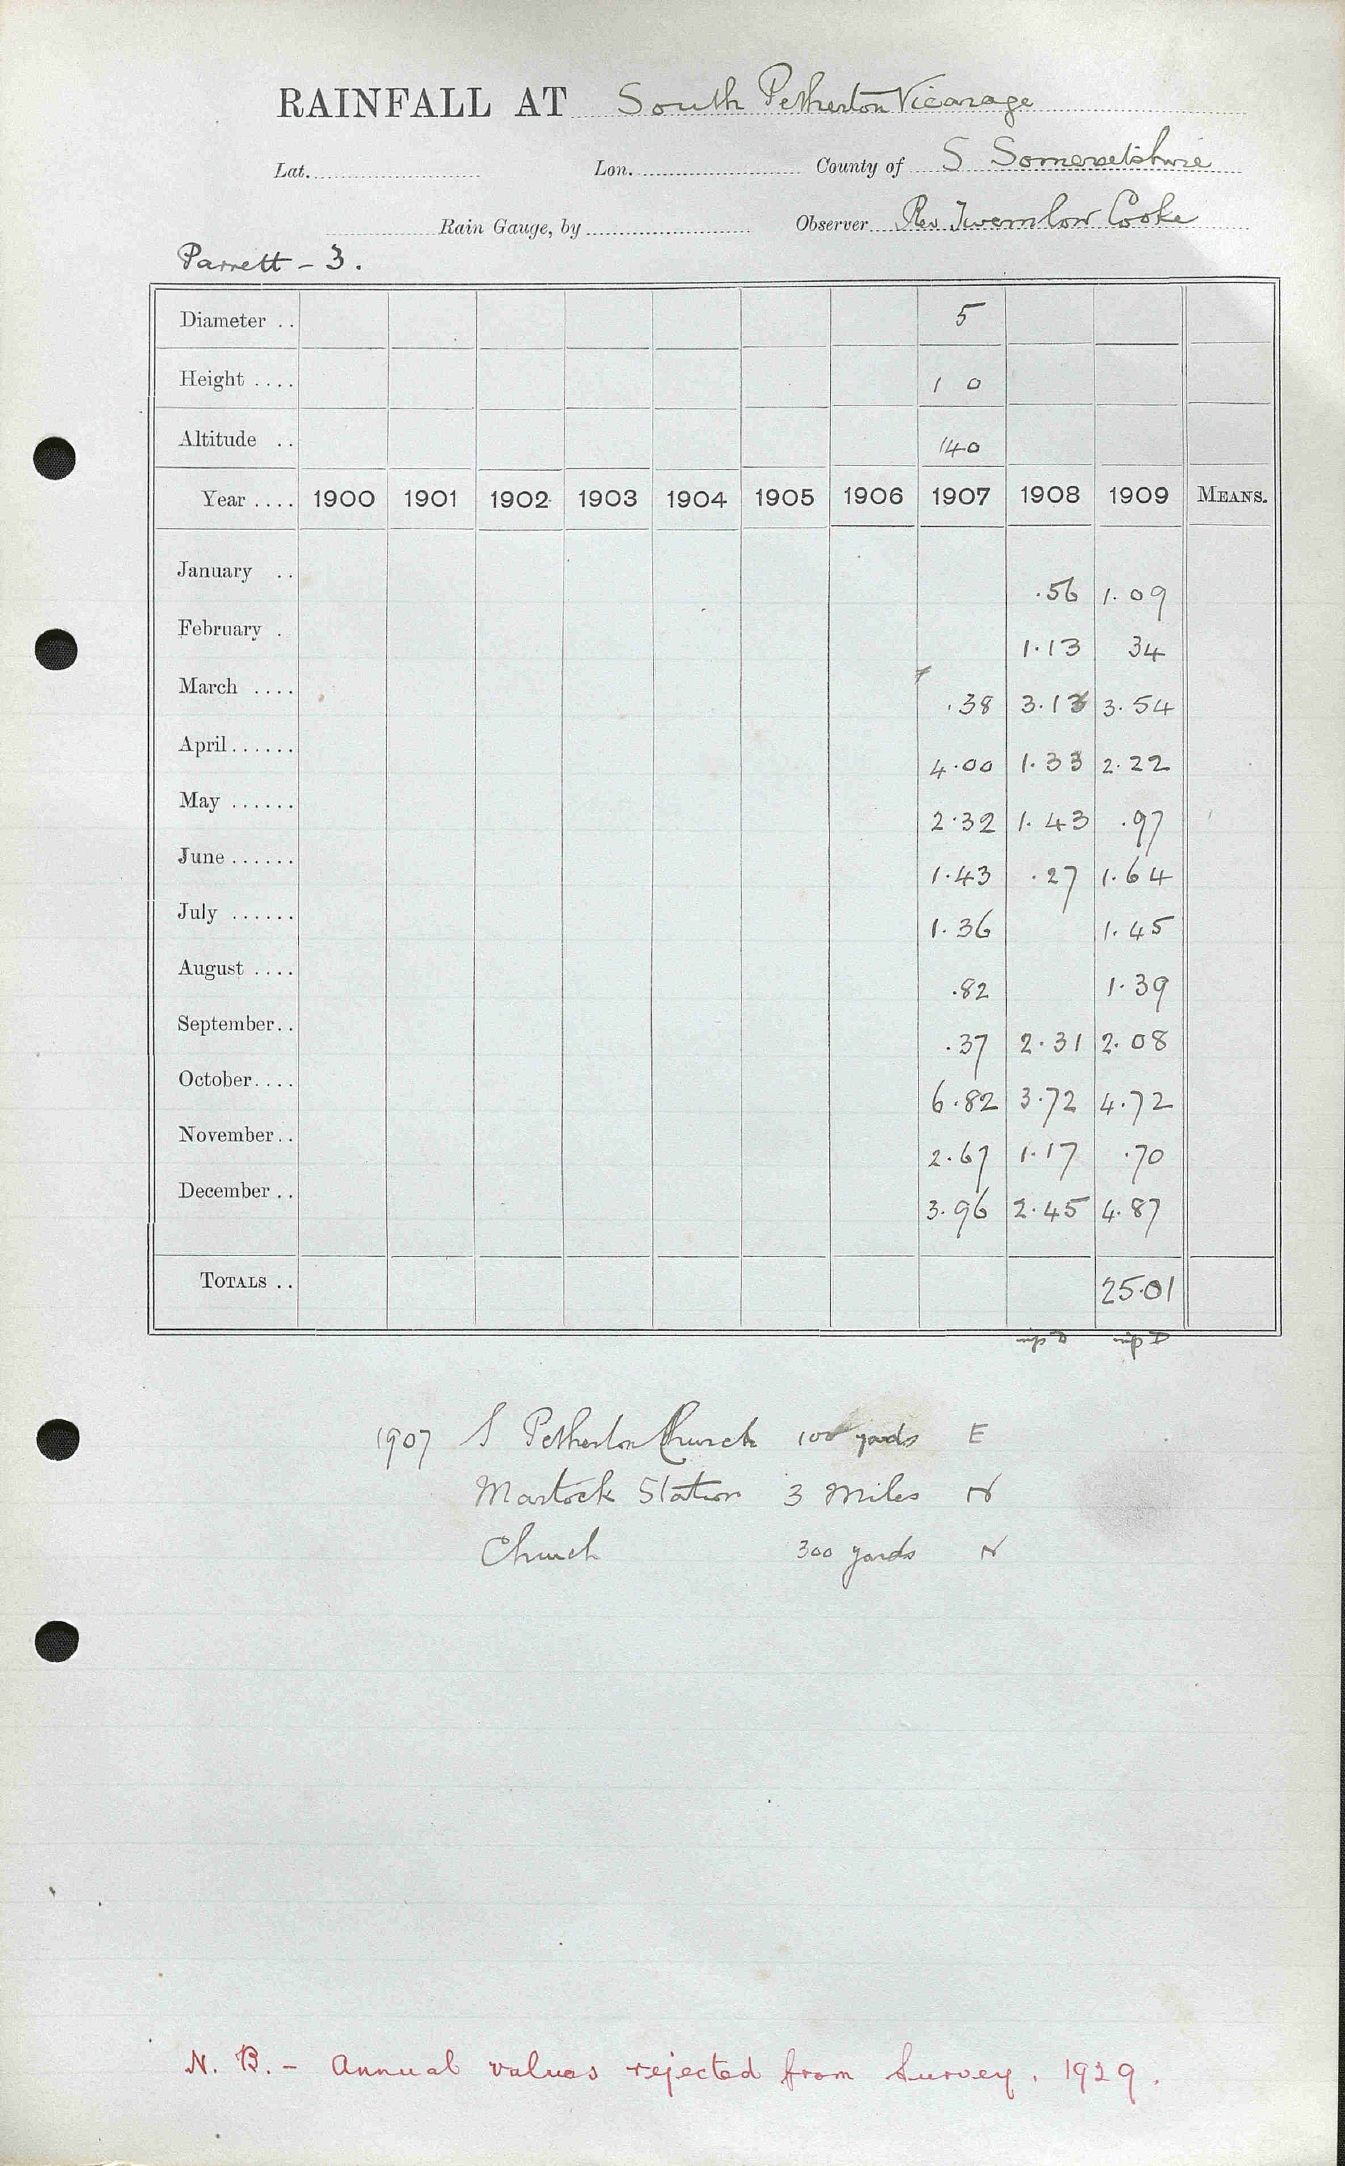 RAINFALL AT South Petherton Vicarage
Lat. Lon. County of S Somersetshire
Rain Gauge, by Observer Rev Twemlow Cooke
Parrett - 3.
Diameter .. 5
Height .... 1 0
Altitude .. 140
Year .... 1900 1901 1902 1903 1904 1905 1906 1907 1908 1909 MEANS.
January .. .56 1.09
February . 1.13 34
March .... .38 3.13 3.54
April...... 4.00 1.33 2.22
May ...... 2.32 1.43 .97
June ...... 1.43 .27 1.64
July ...... 1.36 1.45
August .... .82 1.39
September.. .37 2.31 2.08
October.... 6.82 3.72 4.72
November.. 2.67 1.17 .70
December .. 3.96 2.45 4.87
TOTALS .. 25.01
1907 S Petherton Church 100 yards E
Martock Station 3 Miles N
Church 300 yards N
N. B. - Annual values rejected from Survey. 1929.